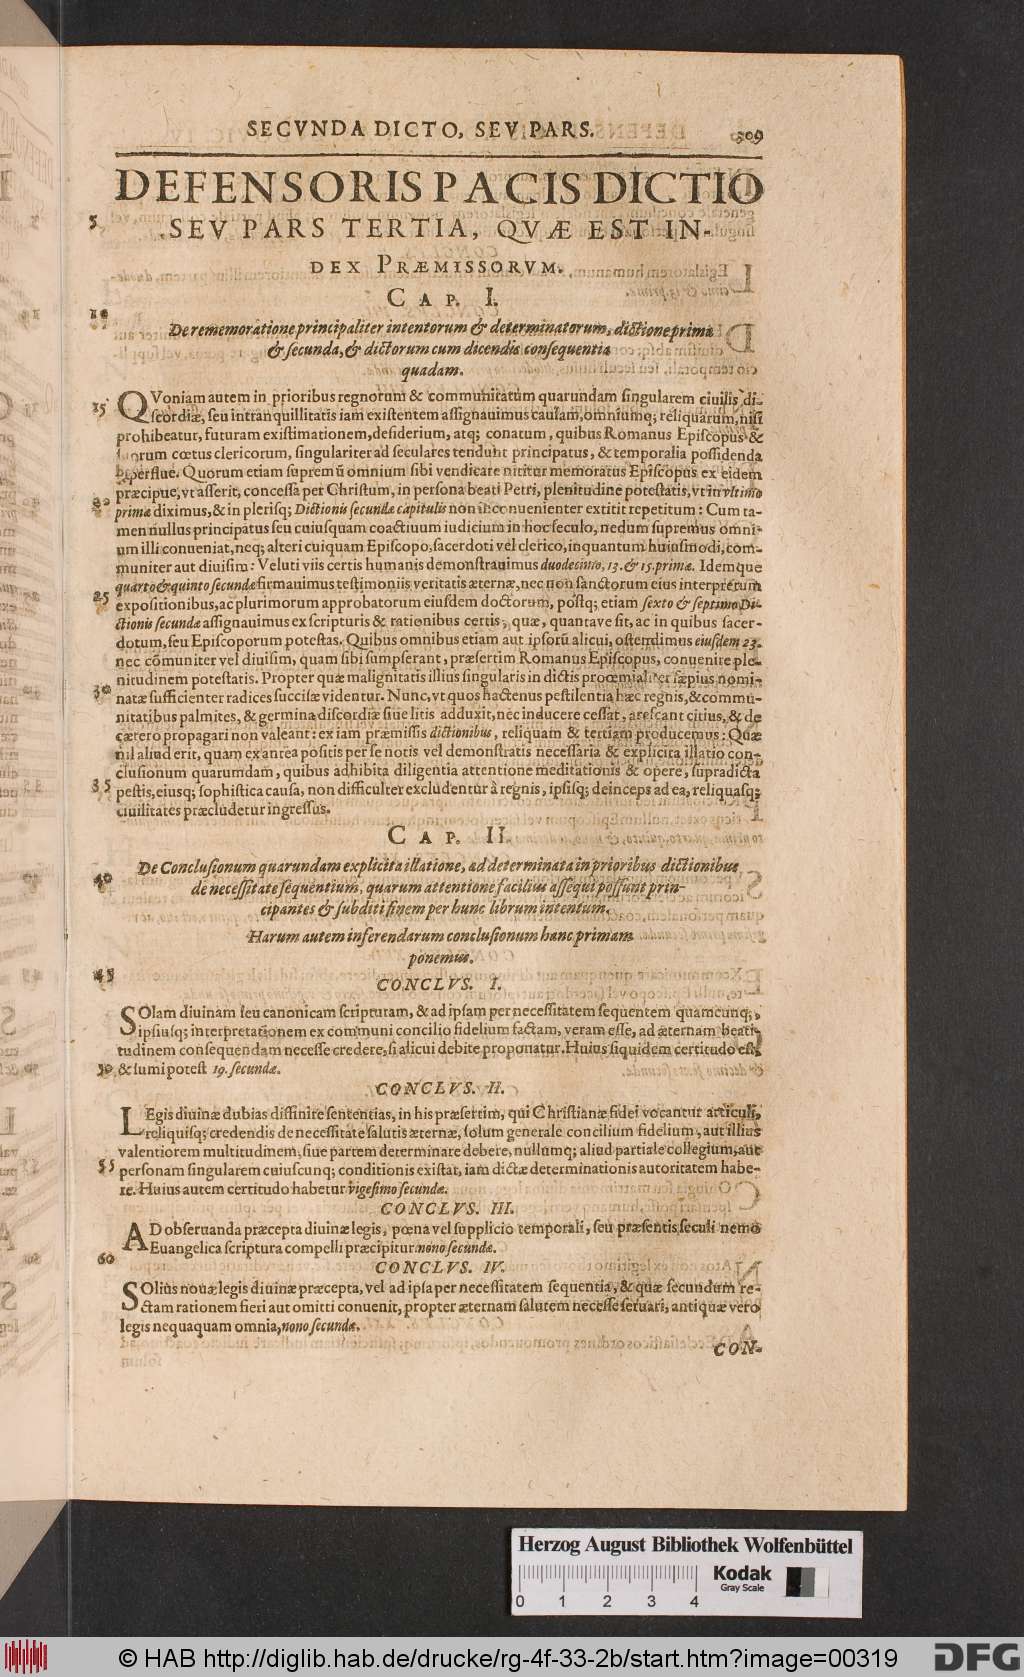 SECVNDA DICTO, SEV PARS. 309
DEFENSORIS PACIS DICTIO
5 SEV PARS TERTIA, QVÆ EST IN-
DEX PRÆMISSORVM.
CAP. I.
10 De rememoratione principaliter intentorum & determinatorum, dictione prima
& secunda, & dictorum cum dicendis consequentia
quadam.
15 QVoniam autem in prioribus regnorum & communitatum quarundam singularem ciuilis di-
scordiæ, seu intranquillitatis iam existentem assignauimus causam, omniumq; reliquarum, nisi
prohibeatur, futuram existimationem, desiderium, atq; conatum, quibus Romanus Episcopus &
suorum cœtus clericorum, singulariter ad seculares tendunt principatus, & temporalia possidenda
superflue. Quorum etiam supremũ omnium sibi vendicare nititur memoratus Episcopus ex eidem
20 præcipue, vt asserit, concessa per Christum, in persona beati Petri, plenitudine potestatis, vt in vltimo
primæ diximus, & in plerisq; Dictionis secundæ capitulis non inconuenienter extitit repetitum: Cum ta-
men nullus principatus seu cuiusquam coactiuum iudicium in hoc seculo, nedum supremus omni-
um illi conueniat, neq; alteri cuiquam Episcopo, sacerdoti vel clerico, inquantum huiusmodi, com-
muniter aut diuisim: Veluti viis certis humanis demonstrauimus duodecimo, 13. & 15. primæ. Idemque
quarto & quinto secundæ firmauimus testimoniis veritatis æternæ, nec non sanctorum eius interpretum
25 expositionibus, ac plurimorum approbatorum eiusdem doctorum, postq; etiam sexto & septimo Di-
ctionis secundæ assignauimus ex scripturis & rationibus certis, quæ, quantave sit, ac in quibus sacer-
dotum, seu Episcoporum potestas. Quibus omnibus etiam aut ipsorũ alicui, ostendimus eiusdem 23.
nec cõmuniter vel diuisim, quam sibi sumpserant, præsertim Romanus Episcopus, conuenire ple-
nitudinem potestatis. Propter quæ malignitatis illius singularis in dictis proœmialiter sæpius nomi-
30 natæ sufficienter radices succisæ videntur. Nunc, vt quos hactenus pestilentia hæc regnis, & commu-
nitatibus palmites, & germina discordiæ siue litis adduxit, nec inducere cessat, arescant citius, & de
cætero propagari non valeant: ex iam præmissis dictionibus, reliquam & tertiam producemus: Quæ
nil aliud erit, quam ex antea positis per se notis vel demonstratis necessaria & explicita illatio con-
clusionum quarundam, quibus adhibita diligentia attentione meditationis & opere, supradicta
35 pestis, eiusq; sophistica causa, non difficulter excludentur à regnis, ipsisq; deinceps ad ea, reliquasq;
ciuilitates præcludetur ingressus.
CAP. II.
40 De Conclusionum quarundam explicita illatione, ad determinata in prioribus dictionibus
de necessitate sequentium, quarum attentione facilius assequi possunt prin-
cipantes & subditi finem per hunc librum intentum.
Harum autem inferendarum conclusionum hanc primam
ponemus.
45 CONCLVS. I.
SOlam diuinam seu canonicam scripturam, & ad ipsam per necessitatem sequentem quamcunq;,
ipsiusq; interpretationem ex communi concilio fidelium factam, veram esse, ad æternam beati-
tudinem consequendam necesse credere, si alicui debite proponatur. Huius siquidem certitudo est,
50 & sumi potest 19. secundæ.
CONCLVS. II.
LEgis diuinæ dubias diffinire sententias, in his præsertim, qui Christianæ fidei vocantur articuli,
reliquisq; credendis de necessitate salutis æternæ, solum generale concilium fidelium, aut illius
valentiorem multitudinem, siue partem determinare debere, nullumq; aliud partiale collegium, aut
55 personam singularem cuiuscunq; conditionis existat, iam dictæ determinationis autoritatem habe-
re. Huius autem certitudo habetur vigesimo secundæ.
CONCLVS. III.
AD obseruanda præcepta diuinæ legis, pœna vel supplicio temporali, seu præsentis seculi nemo
Euangelica scriptura compelli præcipitur: nono secundæ.
60 CONCLVS. IV.
SOlius nouæ legis diuinæ præcepta, vel ad ipsa per necessitatem sequentia, & quæ secundum re-
ctam rationem fieri aut omitti conuenit, propter æternam salutem necesse seruari, antiquæ vero
legis nequaquam omnia, nono secundæ.
CON-
Herzog August Bibliothek Wolfenbüttel
Kodak
Gray Scale
0 1 2 3 4
© HAB http://diglib.hab.de/drucke/rg-4f-33-2b/start.htm?image=00319
DFG